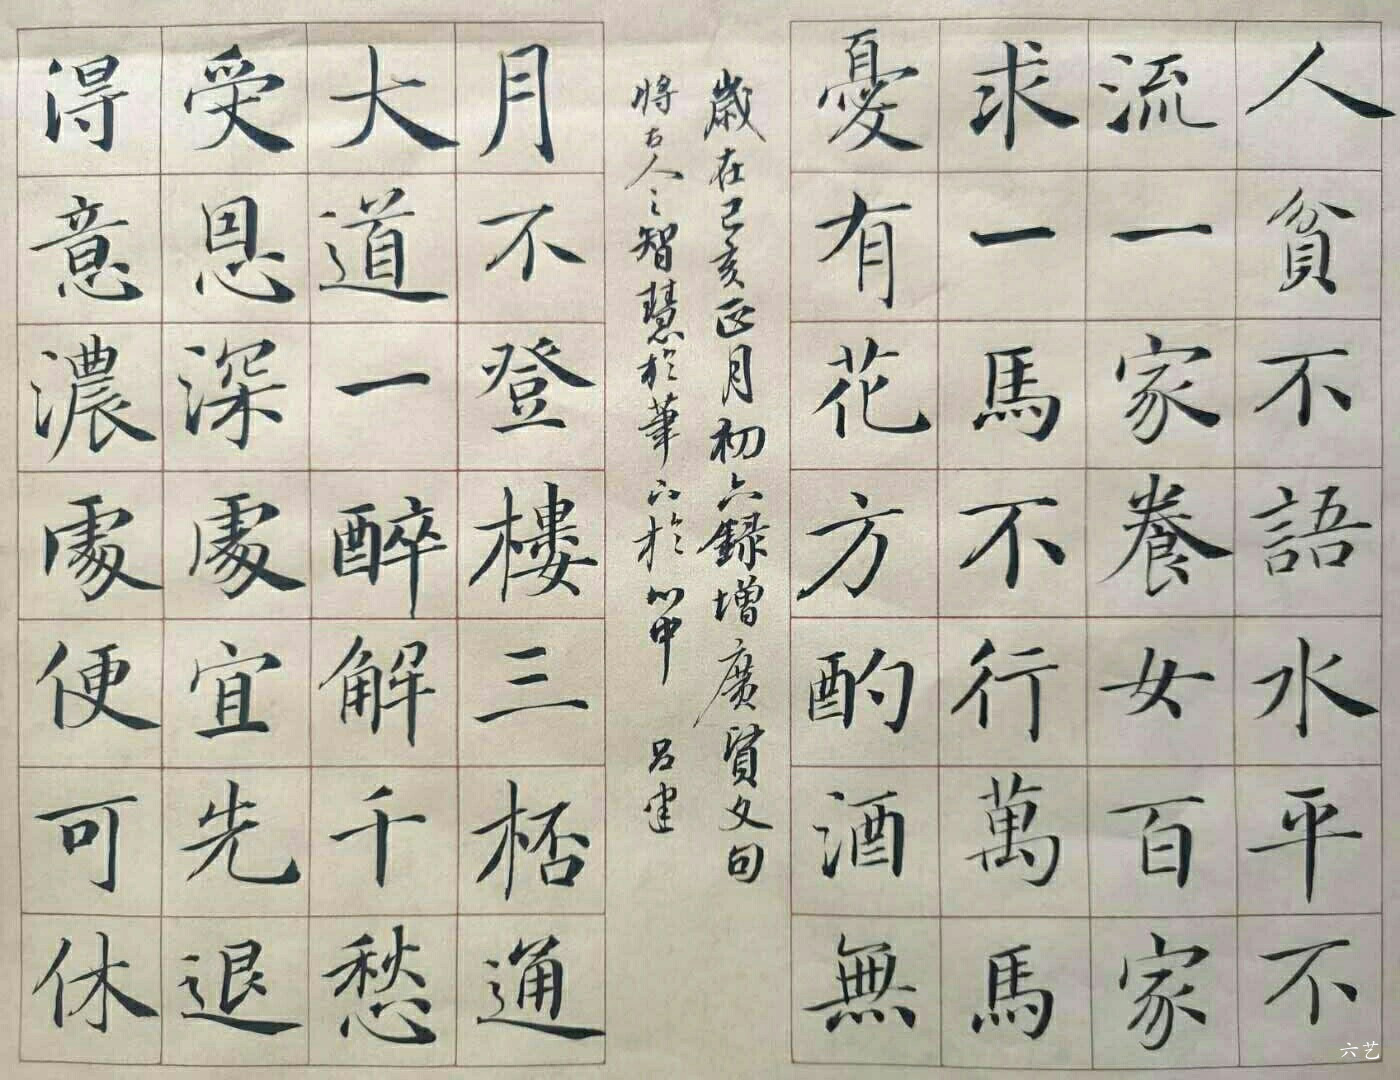 人貧不語水平不
流一家養女百家
求一馬不行萬馬
憂有花方酌酒無
歲在己亥正月初六録增廣賢文句
將古人之智慧於筆下於心中 吕建
月不登樓三桮通
大道一醉解千愁
受恩深處宜先退
得意濃處便可休
六艺